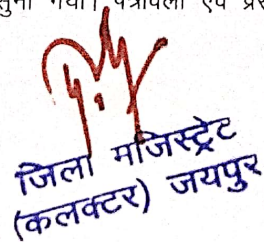 सुना गया। पत्रावली एवं
जिला मजिस्ट्रेट
(कलक्टर) जयपुर